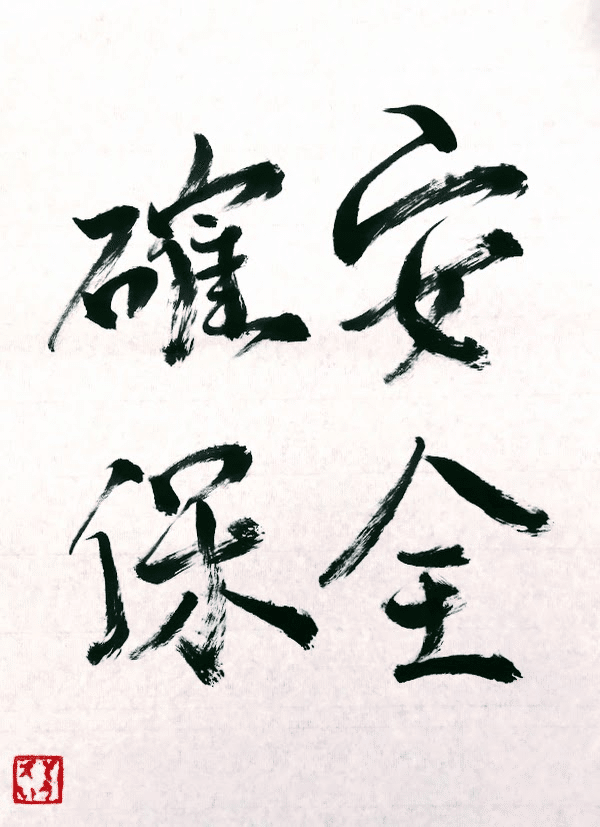 安全
確保